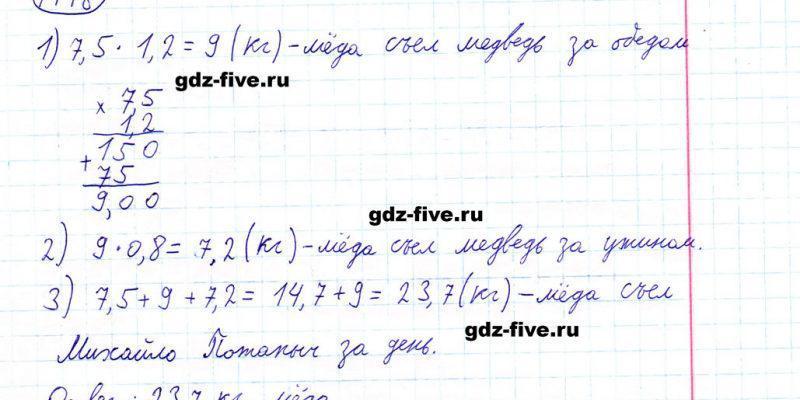 1) 7,5 · 1,2 = 9 (кг) – мёда съел медведь за обедом
gdz-five.ru
× 7,5
1,2
150
+ 75
9,00
gdz-five.ru
2) 9 · 0,8 = 7,2 (кг) – мёда съел медведь за ужином.
3) 7,5 + 9 + 7,2 = 14,7 + 9 = 23,7 (кг) – мёда съел
gdz-five.ru
Михайло Потапыч за день.